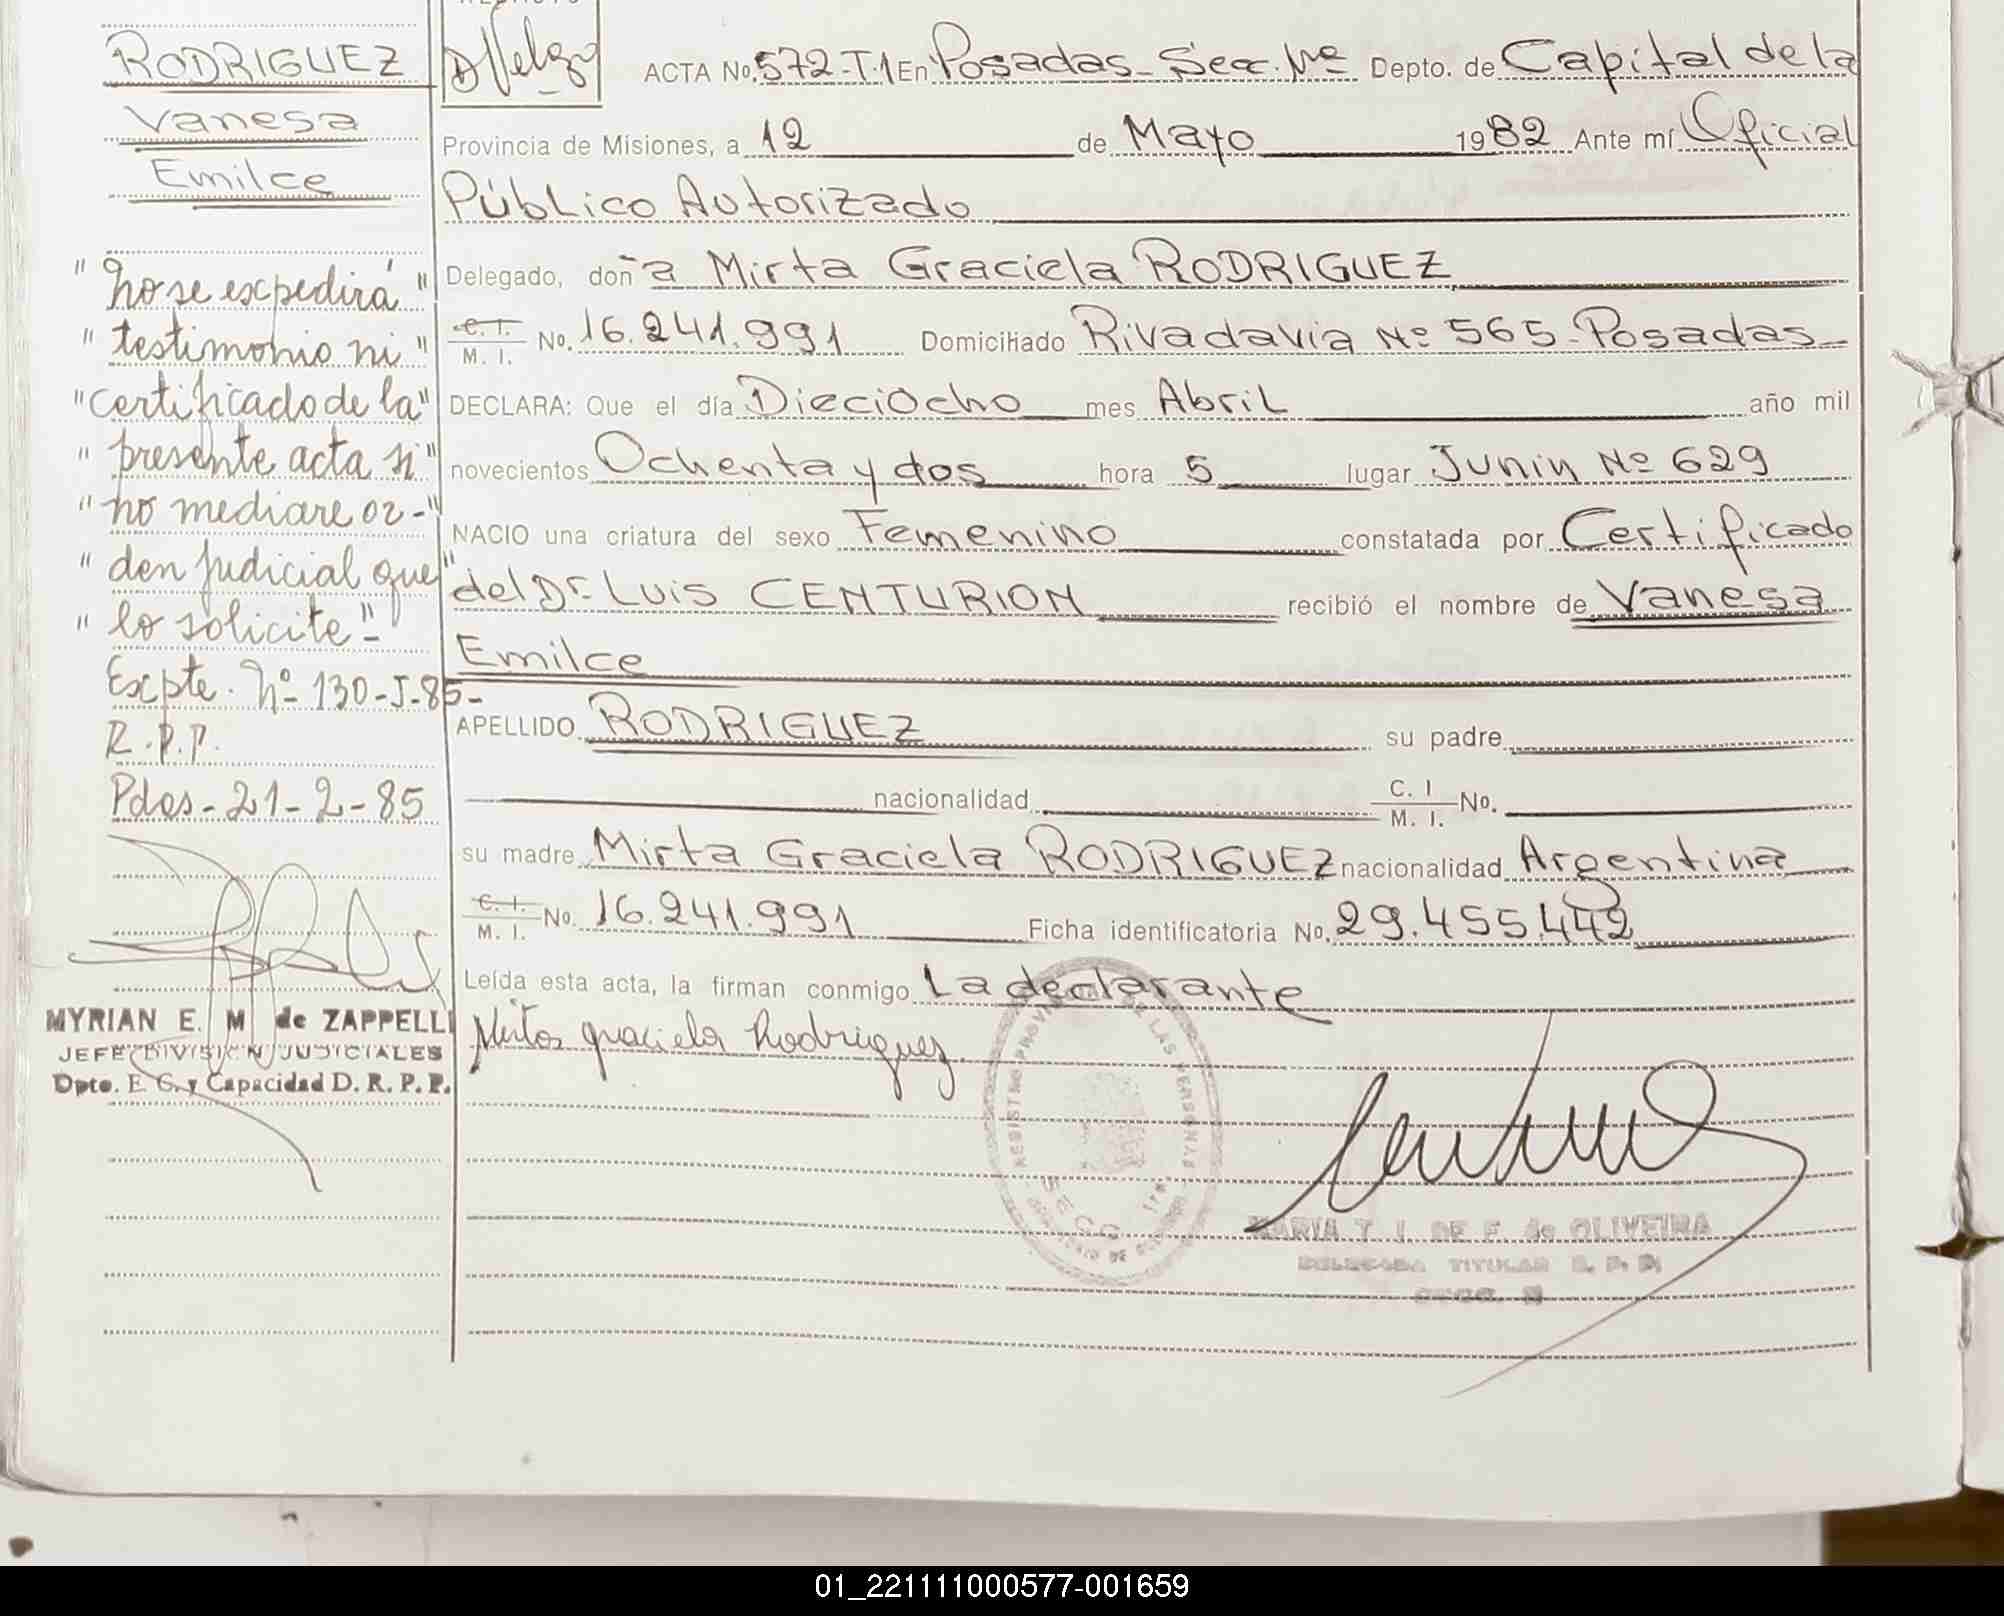 RODRIGUEZ
Vanesa
Emilce
"no se expedirá"
"testimonio ni"
"certificado de la"
"presente acta si"
"no mediare or-"
"den judicial que"
"lo solicite"-
Expte. Nº 130-J-85-
R.P.P.
Pdas-21-2-85
MYRIAN E. M de ZAPPELLI
JEFE DIVISION JUDICIALES
Dpto. E. C. y Capacidad D. R. P. P.
ACTA No. 572-T.1 En Posadas-Sec. Depto. de Capital de la
Provincia de Misiones, a 12 de Mayo 1982 Ante mí Oficial
Público Autorizado
Delegado, don a Mirta Graciela RODRIGUEZ
C. I. M. I. No. 16.241.991 Domiciliado Rivadavia Nº 565-Posadas-
DECLARA: Que el día Dieciocho mes Abril año mil
novecientos Ochenta y dos hora 5 lugar Junin Nº 629
NACIO una criatura del sexo Femenino constatada por Certificado
del Dr Luis CENTURION recibió el nombre de Vanesa
Emilce
APELLIDO RODRIGUEZ su padre
nacionalidad C. I M. I. No.
su madre Mirta Graciela RODRIGUEZ nacionalidad Argentina
C. I. M. I. No. 16.241.991 Ficha identificatoria No. 29.455.442
Leída esta acta, la firman conmigo La declarante
Mirta graciela Rodriguez
MARIA T. I. DE F. de OLIVEIRA
DELEGADA TITULAR R. P. P.
01_221111000577-001659